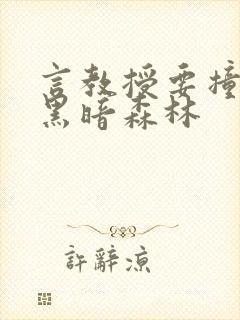 言教授要撞
黑暗森林
許辭凉